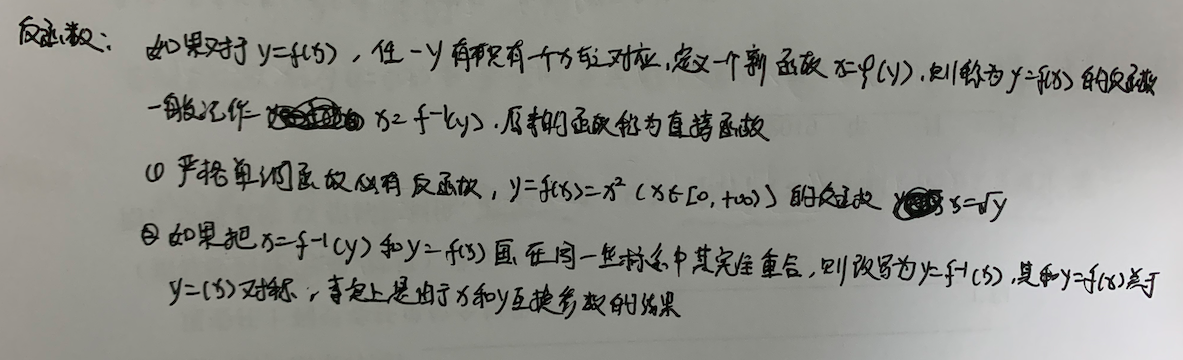 反函数：如果对于 y=f(x)，任一y有且只有一个x与之对应，定义一个新函数 x=φ(y)，则称为y=f(x)的反函数
一般记作 x=f-1(y)，原来的函数称为直接函数
① 严格单调函数必有反函数，y=f(x)=x² (x∈[0,+∞)) 的反函数 x=√y
② 如果把 x=f-1(y) 和 y=f(x) 画在同一坐标系中其完全重合，则改写为y=f-1(x)，其和y=f(x)关于
y=(x)对称，事实上是由于x和y互换参数的结果